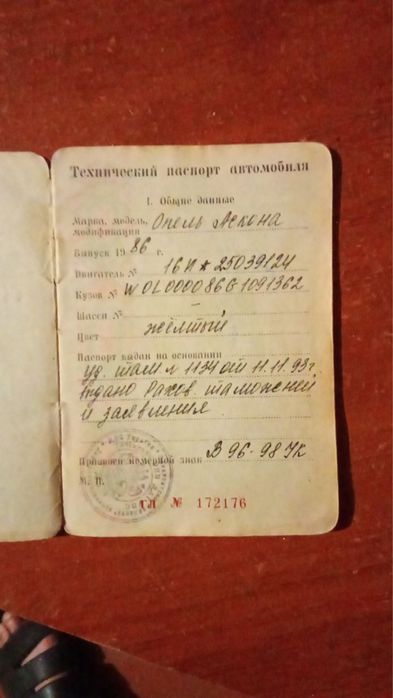 Технический паспорт автомобиля
I. Общие данные
Марка, модель, Опель Аскона
модификация
Выпуск 1986 г.
Двигатель № 16N * 25039124
Кузов № W0L000086G1091362
Шасси № —
Цвет жёлтый
Паспорт выдан на основании
уд. там. № 1134 от 11.11.93г.
выдано таможней
и заявления
номерной знак В 96-98 УК
М. П.
ГЛ № 172176